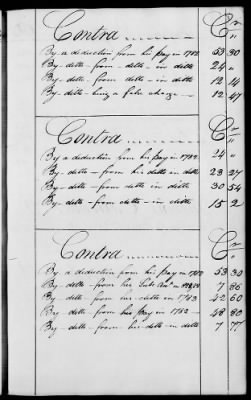 Contra Cr
By a deduction from his pay in 1782 53 30
By ditto - from - ditto - in ditto 24 "
By ditto - from ditto - in ditto 12 14
By ditto - being a false charge 12 47
Contra Cr
By a deduction from his pay in 1782 24 "
By ditto - from his ditto in ditto 23 27
By ditto - from ditto in ditto 30 54
By ditto - from - ditto - in ditto 15 2
Contra Cr
By a deduction from his pay in 1782 53 30
By ditto - from his Subs. 7 86
By ditto from his - ditto in 1783 42 60
By ditto - from his pay in 1782 48 80
By ditto - from his ditto in ditto 7 77